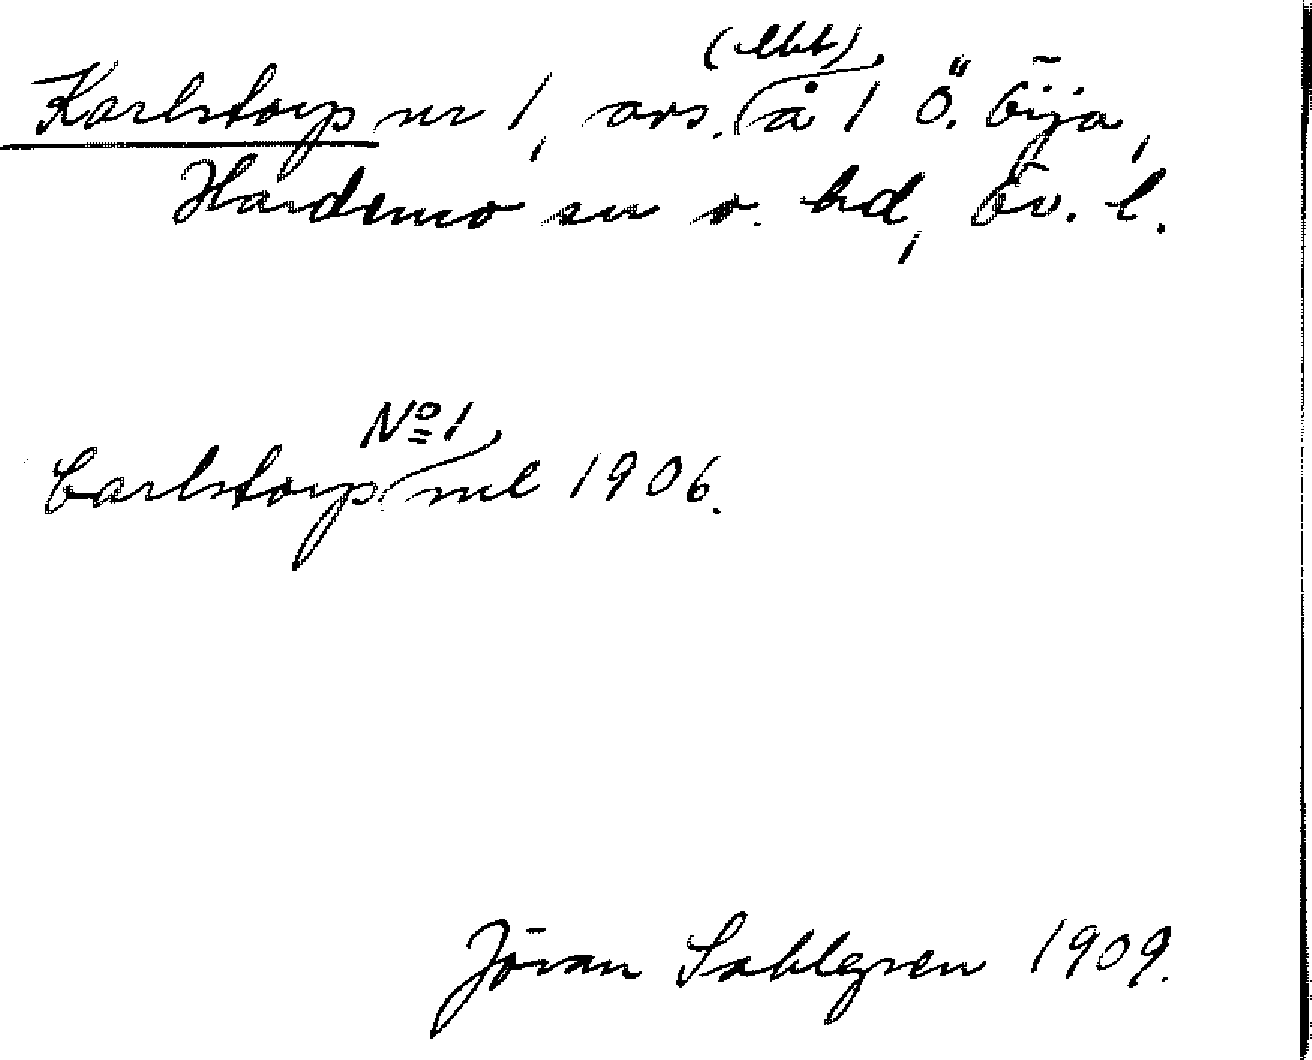 Karlstorp nr 1, avs. (lht) å 1 Ö. Öja,
Hardemo sn o. hd, Ör. l.
Carlstorp No 1 ml 1906.
Jöran Sahlgren 1909.